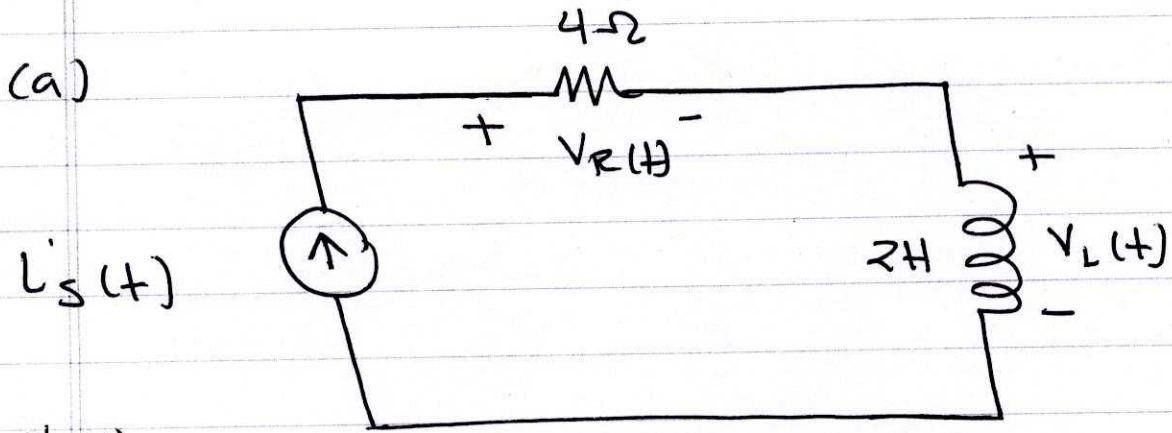 4Ω
(a)
+ -
V_R(t)
+
i_s(t)
2H V_L(t)
-